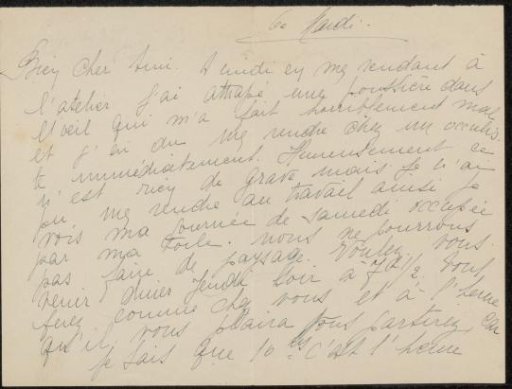 ce Mardi.
Bien cher Ami. Lundi en me rendant à
l'atelier j'ai attrapé une poussière dans
l'oeil qui m'a fait horriblement mal
et j'ai du me rendre chez un oculis
te immédiatement. Heureusement ce
n'est rien de grave mais je n'ai
pu me rendre au travail ainsi je
vois ma journée de samedi occupée
par ma toile. nous ne pourrons
pas faire de paysage. Voulez vous
venir diner Jeudi soir a 7h 1/2 vous
ferez comme chez vous et à l'heure
qu'il vous plaira vous partirez, car
je sais que 10 hs c'est l'heure